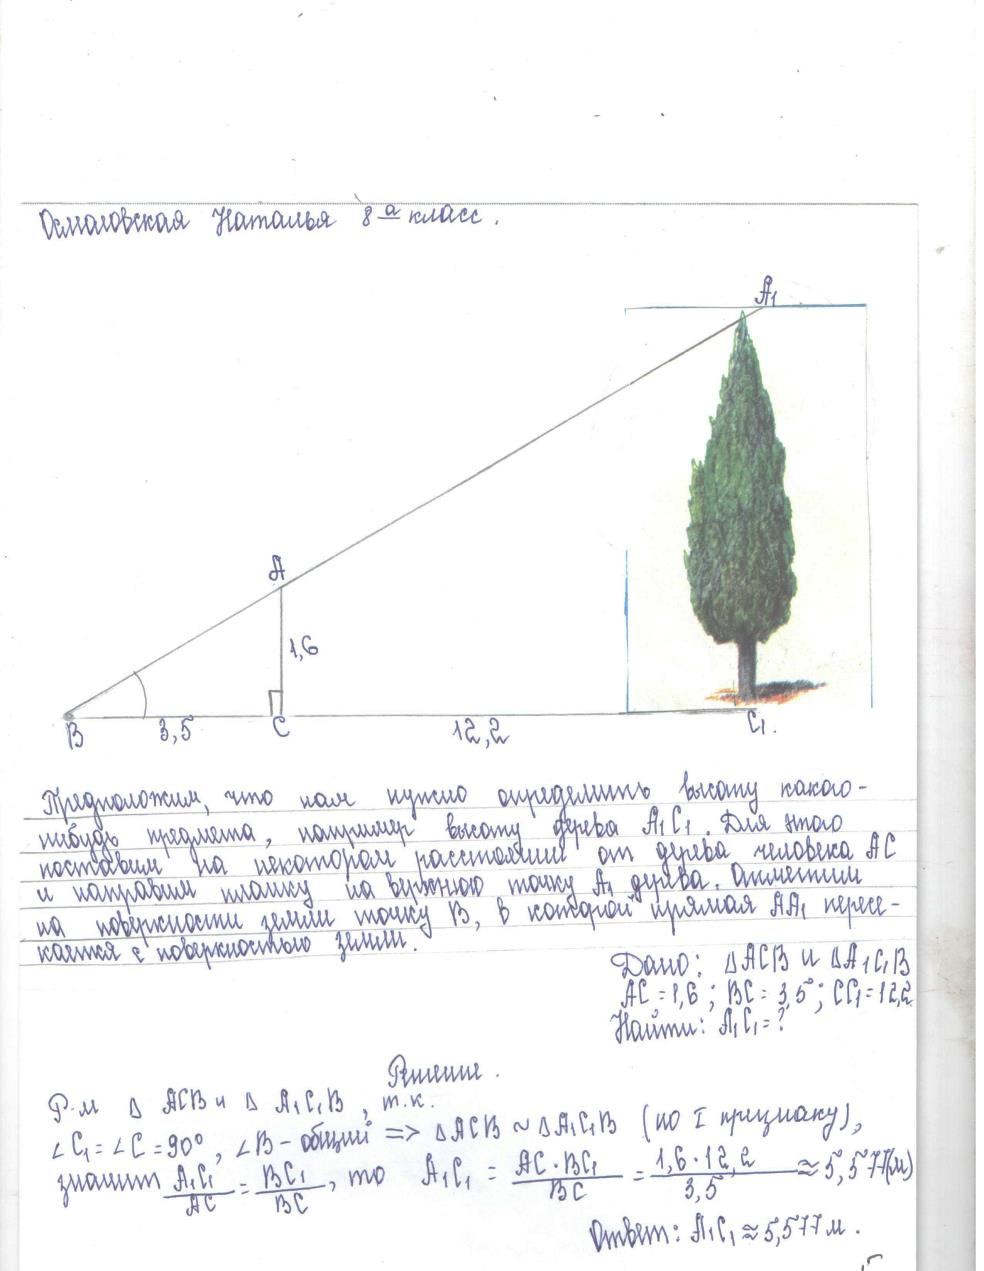 Осмаговская Наталья 8 а класс.
A₁
A
1,6
B 3,5 C 12,2 C₁.
Предположим, что нам нужно определить высоту какого-
нибудь предмета, например высоту дерева A₁C₁. Для этого
поставим на некотором расстоянии от дерева человека AC
и направим планку на верхнюю точку A₁ дерева. Отметим
на поверхности земли точку B, в которой прямая AA₁ пересе-
кается с поверхностью земли.
Дано: ΔACB и ΔA₁C₁B
AC = 1,6 ; BC = 3,5 ; CC₁ = 12,2
Найти: A₁C₁ = ?
Решение.
Р-м Δ ACB и Δ A₁C₁B, т.к.
∠C₁ = ∠C = 90°, ∠B - общий => ΔACB ~ ΔA₁C₁B (по I признаку),
значит A₁C₁/AC = BC₁/BC, то A₁C₁ = AC·BC₁/BC = 1,6·12,2/3,5 ≈ 5,577(м)
Ответ: A₁C₁ ≈ 5,577 м.